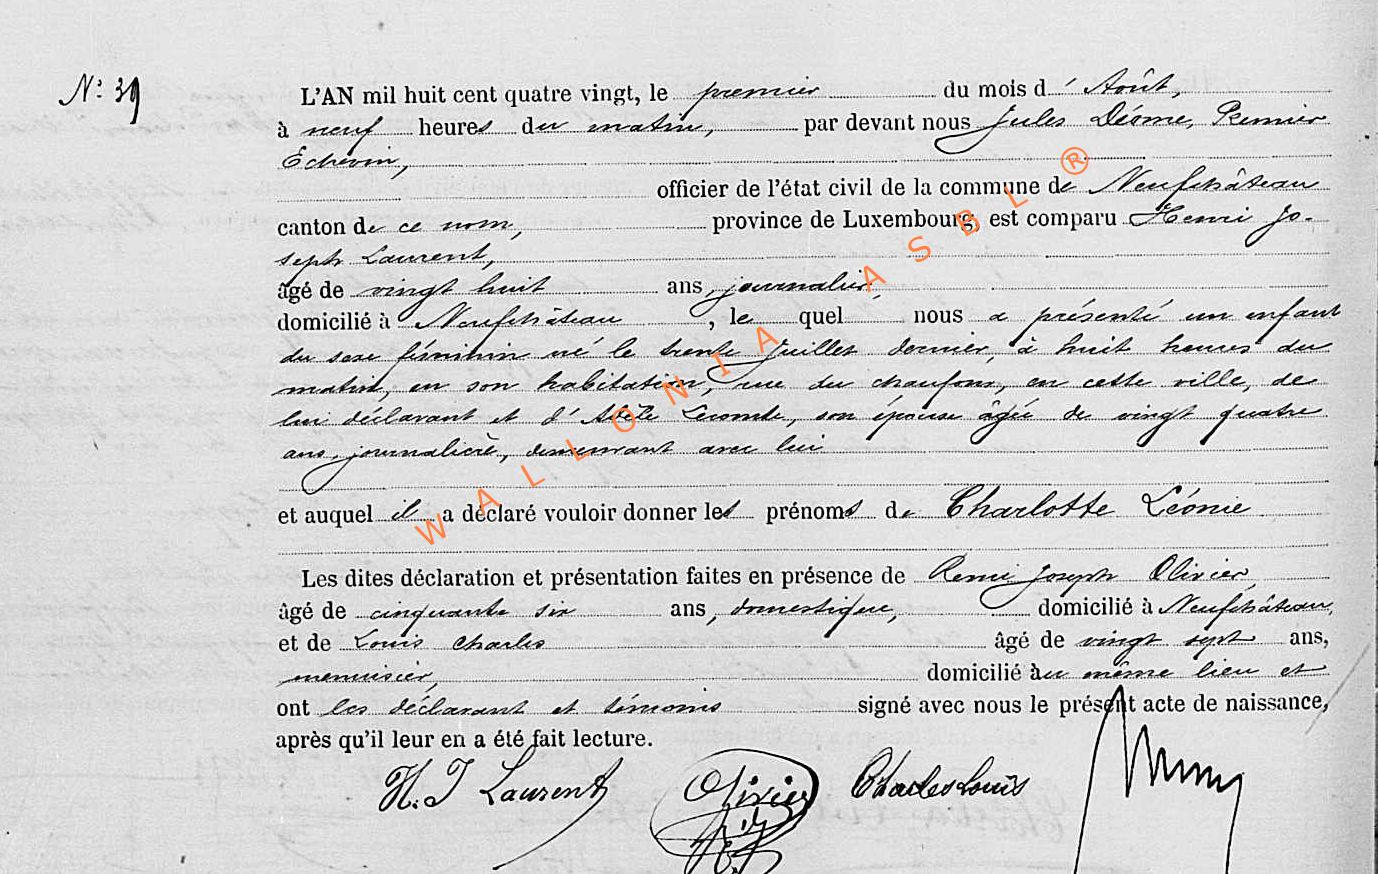 N° 39
L'AN mil huit cent quatre vingt, le premier du mois d'Août,
à neuf heures du matin, par devant nous Jules Déome, Premier
Echevin,
officier de l'état civil de la commune de Neufchâteau
canton de ce nom, province de Luxembourg, est comparu Henri Jo-
seph Laurent,
âgé de vingt huit ans, journalier,
domicilié à Neufchâteau, le quel nous a présenté un enfant
du sexe féminin né le trente Juillet dernier, à huit heures du
matin, en son habitation, rue du chaufour, en cette ville, de
lui déclarant et d'Adèle Lecomte, son épouse âgée de vingt quatre
ans, journalière, demeurant avec lui
et auquel il a déclaré vouloir donner les prénoms de Charlotte Léonie
Les dites déclaration et présentation faites en présence de Remi Joseph Olivier,
âgé de cinquante six ans, domestique, domicilié à Neufchâteau,
et de Louis Charles âgé de vingt sept ans,
menuisier, domicilié au même lieu et
ont les déclarant et témoins signé avec nous le présent acte de naissance,
après qu'il leur en a été fait lecture.
H. J Laurent Olivier Charles Louis
R. J.
WALLONIA ASBL ®